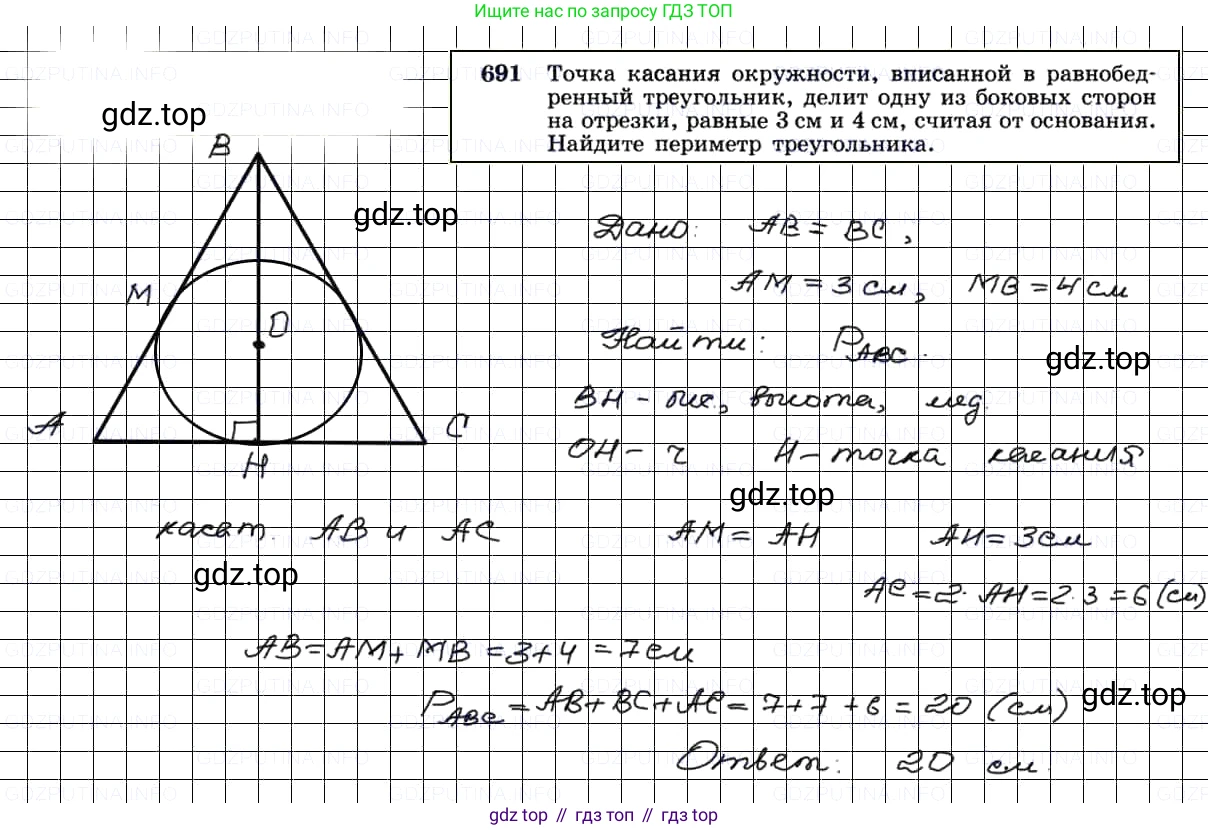 Ищите нас по запросу ГДЗ ТОП
GDZPUTINA.INFO
691 Точка касания окружности, вписанной в равнобед-
ренный треугольник, делит одну из боковых сторон
на отрезки, равные 3 см и 4 см, считая от основания.
Найдите периметр треугольника.
gdz.top
B
gdz.top
Дано: AB = BC,
M
AM = 3 см, MB = 4 см
O
Найти: PABC.
gdz.top
BH - бис., высота, мед.
A
C
OH - r H - точка касания
H
gdz.top
касат. AB и AC AM = AH AH = 3 см
gdz.top
AC = 2 · AH = 2 · 3 = 6 (см)
AB = AM + MB = 3 + 4 = 7 см
gdz.top
PABC = AB + BC + AC = 7 + 7 + 6 = 20 (см)
Ответ: 20 см.
gdz top // гдз топ // гдз top